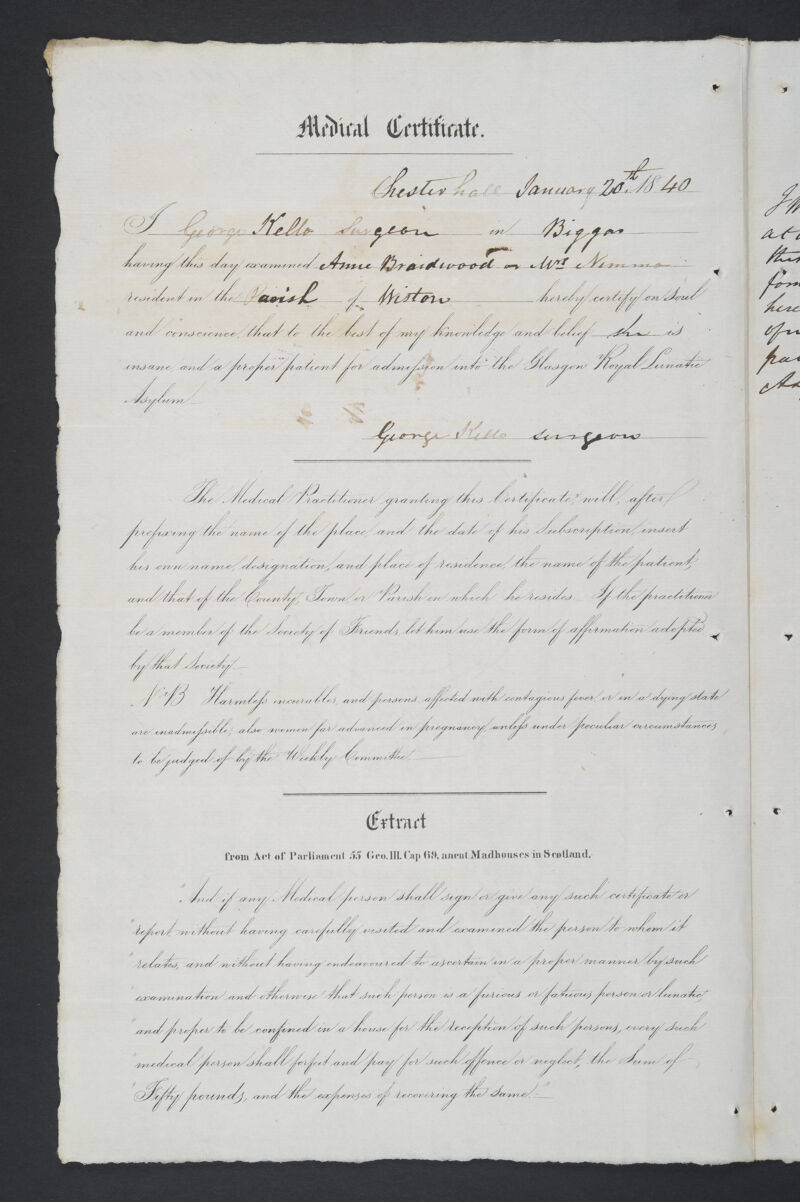 Medical Certificate.
Chesterhall January 20th 1840
I George Kello Surgeon in Biggar
having this day examined Anne Braidwood or Mrs Nimmo
resident in the Parish of Wiston hereby certify on soul
and conscience, that to the best of my knowledge and belief she is
insane and a proper patient for admission into the Glasgow Royal Lunatic
Asylum
George Kello surgeon
The Medical Practitioner, granting this Certificate, will, after
prefixing the name of the place and the date of his Subscription, insert
his own name, designation, and place of residence, the name of the patient,
and that of the County, Town or Parish in which he resides. If the practitioner
be a member of the Society of Friends, let him use the form of affirmation adopted
by that Society.
N.B Harmless incurables, and persons affected with contagious fever, or in a dying state
are inadmissible; also women far advanced in pregnancy, unless under peculiar circumstances,
to be judged of by the Weekly Committee.
Extract
from Act of Parliament 55 Geo. III. Cap 69, anent Madhouses in Scotland.
"And if any Medical person shall sign or give any such certificate or
"report, without having carefully visited and examined the person to whom it
"relates, and without having endeavoured to ascertain in a proper manner by such
"examination and otherwise that such person is a furious or fatuous person or lunatic
"and proper to be confined in a house for the reception of such persons, every such
"medical person shall forfeit and pay for such offence or neglect, the Sum of
"Fifty pounds, and the expenses of recovering the same."